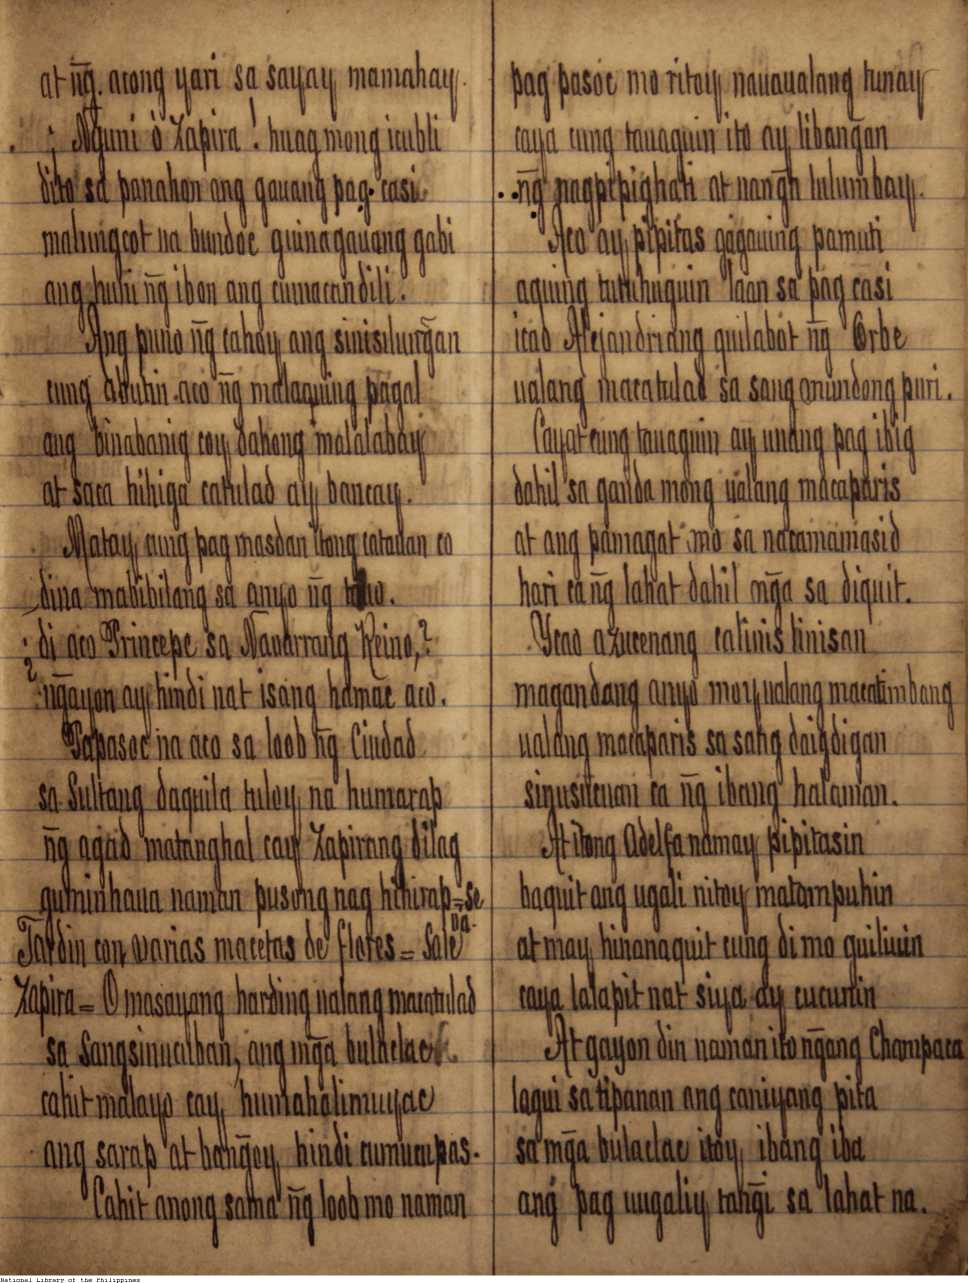 at n̄g. acong yari sa sayay mamahay.
¡ Nguni ò Zapira! huag mong icubli
dito sa panahon ang gauang pag-casi.
malungcot na bundoc guinagauang gabi
ang huni n̄g ibon ang cumacandili.
Ang puno n̄g cahoy ang sinisilun̄gan
cung abutin aco n̄g malaquing págal
ang binabanig coy dahong malalabay
at saca hihiga catulad ay bancay.
Matay cung pag masdan itong catauan co
dina mabibilang sa anyo n̄g
¿ di aco Princepe sa Navarrang Reino,?
n̄gayon ay hindi nat isang hamac aco.
Papasoc na aco sa loob n̄g Ciudad
sa Sultang daquila tuloy na humarap
n̄g agad matanghal cay Zapirang dilag
guminhaua naman pusong nag hihirap = se
Jardin con varias macetas de flores = Sale
Zapira = O masayang harding ualang macatulad
sa Sangsinucuban, ang mn̄ga bulaclac
cahit malayo cay humahalimuyac
ang sarap at ban̄goy hindi cumucupas.
Cahit anong sama n̄g loob mo naman
pag pasoc mo ritoy nauaualang tunay
caya cung tauaguin ito ay liban̄gan
n̄g nagpipighati at nan̄ga lulumbay.
Aco ay pipitas gagauing pamuti
aquing tutuhuguin laan sa pag casi
icao Alejandriang quilabot n̄g Orbe
ualang macatulad sa sang mundong puri.
Cayat cung tauaguin ay unang pag ibig
dahil sa ganda mong ualang macaparis
at ang pamagat mo sa nacamamasid
hari ca n̄g lahat dahil mn̄ga sa diquit.
Ycao azucenang calinis linisan
magandang anyo moy ualang macatimbang
ualang macaparis sa sang daigdigan
sinusucuan ca n̄g ibang halaman.
At itong Adelfa namay pipitasin
baquit ang ugali nitoy matampuhin
at may hinanaquit cung di mo quiliuin
caya lalapit nat siya ay cucunin
At gayon din naman ito n̄gang Champaca
lagui sa tipanan ang caniyang pita
sa mn̄ga bulaclac itoy ibang iba
ang pag uugaliy tan̄gi sa lahat na.
National Library of the Philippines